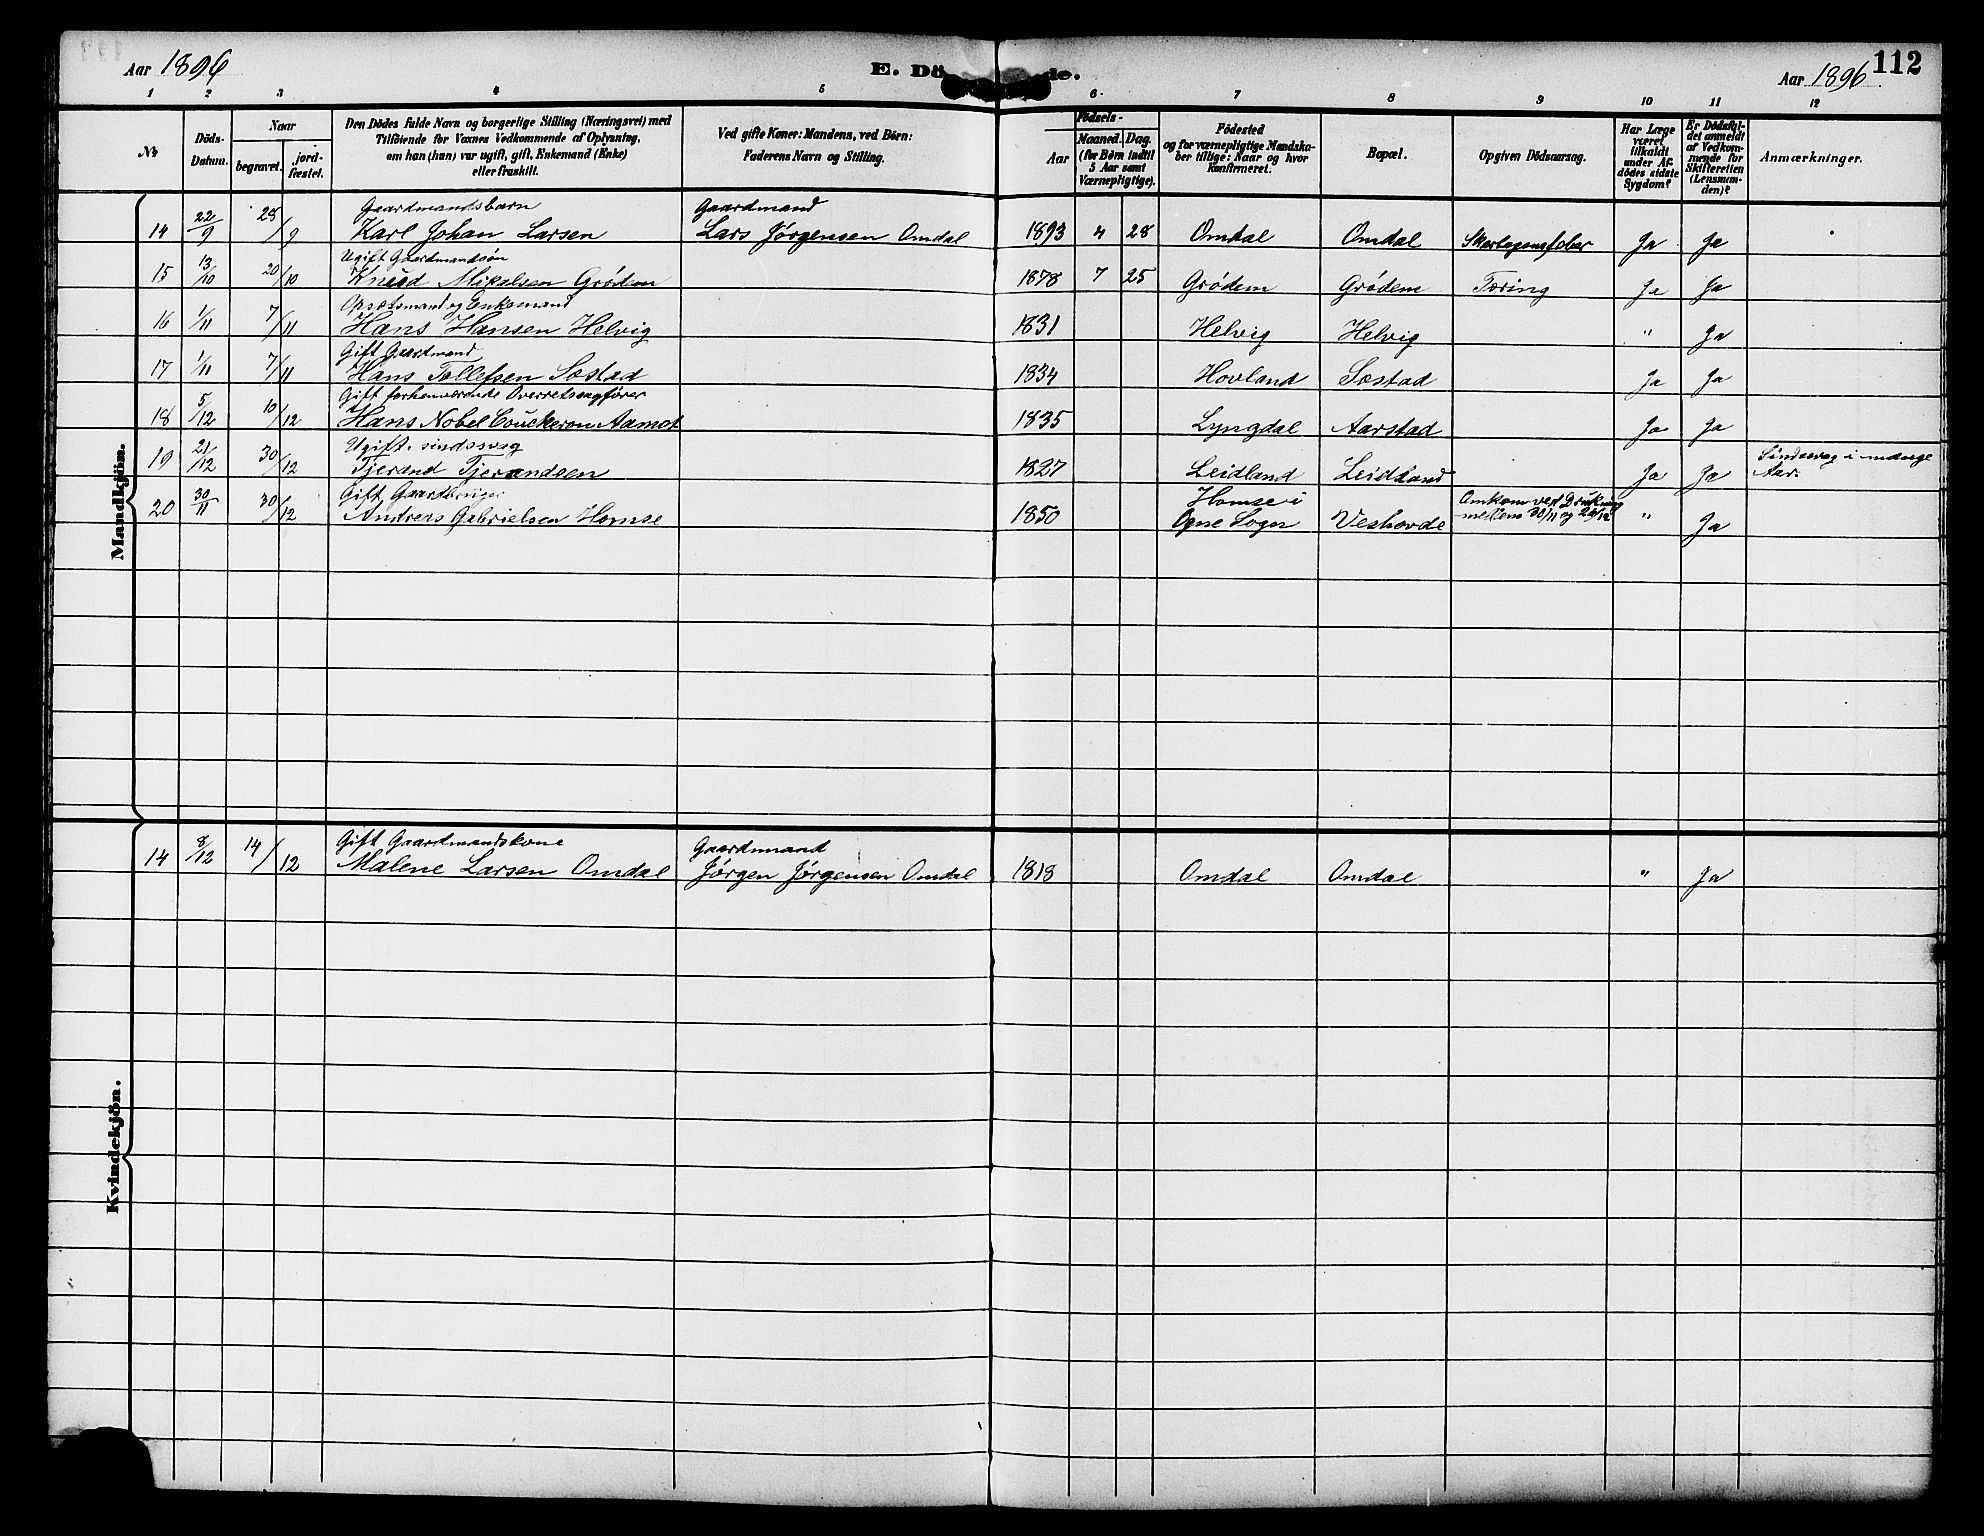 Aar 1896
E. Dö de.
Aar 1896
112
1 2 3 4 5 6. 7 8 9 10 11 12
No
Döds-
Datum.
Naar
begravet.
jord-
fæstet.
Den Dödes fulde Navn og borgerlige Stilling (Næringsvei) med
Tilföiende for Voxnes Vedkommende af Oplysning,
om han (hun) var ugift, gift, Enkemand (Enke)
eller fraskilt.
Ved gifte Koner: Mandens, ved Börn:
Faderens Navn og Stilling.
Födsels-
Aar
Maaned. Dag.
(for Börn indtil
5 Aar samt
Værnepligtige).
Födested
og for værnepligtige Mandska-
ber tillige: Naar og hvor
konfirmeret.
Bopæl.
Opgiven Dödsaarsag.
Har Læge
været
tilkaldt
under Af-
dödes sidste
Sygdom?
Er Dödsfal-
det anmeldt
af Vedkom-
mende for
Skifteretten
(Lensman-
den)?
Anmærkninger.
Mandkjön.
Gaardmandsbarn Gaardmand
14 22/9 28/9 Karl Johan Larsen Lars Jørgensen Omdal 1893 4 28 Omdal Omdal Ja Ja
Ugift Gaardmandsøn
15 13/10 20/10 Knud Mikalsen Grødem 1878 7 25 Grødem Grødem Tæring Ja Ja
Opsetsmand og Enkemand
16 1/11 7/11 Hans Hansen Helvig 1831 Helvig Helvig " Ja
Gift Gaardmand
17 1/11 7/11 Hans Tollefsen Sæstad 1834 Hovland Sæstad Ja Ja
Gift forhenværende Overretssagfører
18 5/12 10/12 Hans Nobel Couckeron Aamot 1835 Lyngdal Aarstad Ja Ja
Ugift. sindssvag Sindssvag i mange
19 21/12 30/12 Tjerand Tjerandsen 1827 Leidland Leidland Ja Ja Aar.
Gift Gaardbruger Homse i Omkom ved Drukning
20 30/11 30/12 Andreas Gabrielsen Homse 1850 Ogne Sogn Veshovde mellem 30/11 og " Ja
Kvindekjön.
Gift Gaardmandskone Gaardmand
14 8/12 14/12 Malene Larsen Omdal Jørgen Jørgensen Omdal 1818 Omdal Omdal " Ja